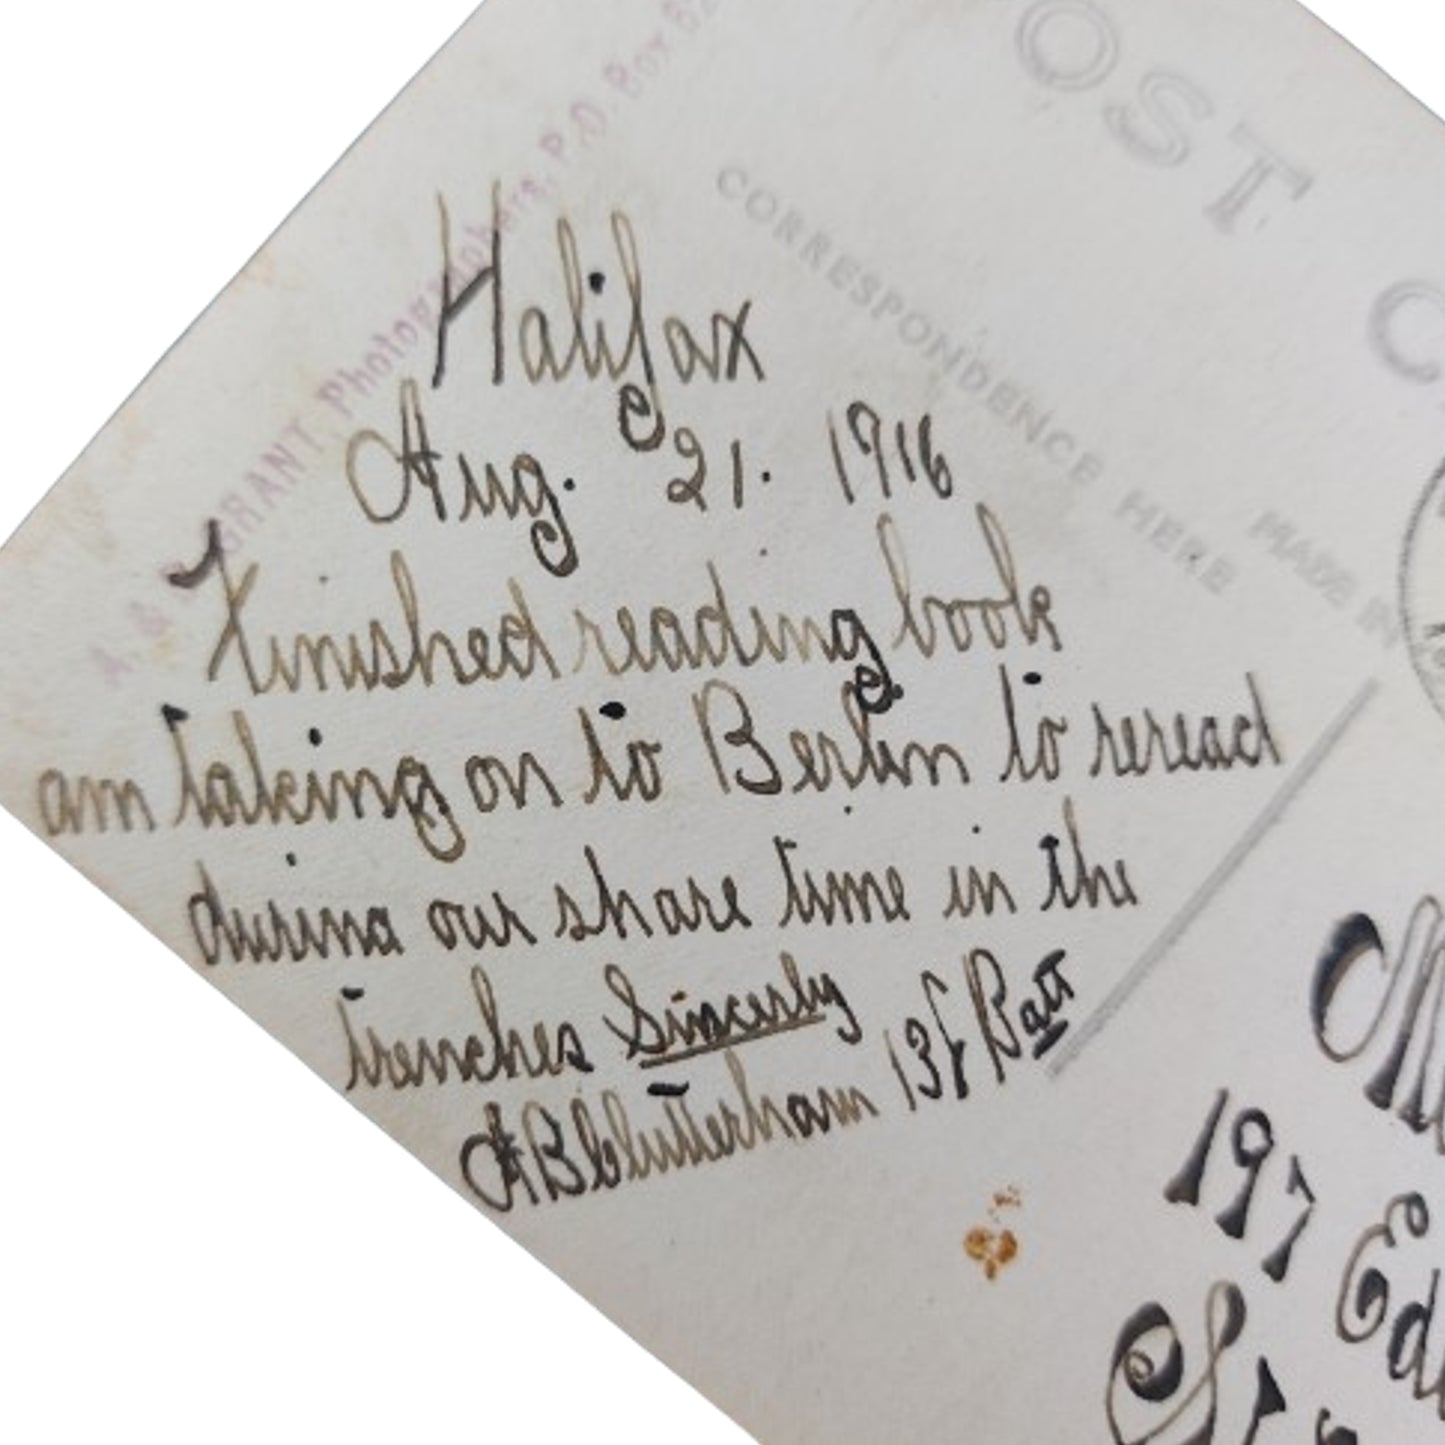 A. & GRANT Photographers, P.O. Box 62
OST C
CORRESPONDENCE HERE
MADE IN
Halifax
Aug. 21. 1916
Finished reading book
am taking on to Berlin to reread
during our share time in the
trenches Sincerly
AB Clutterham 13 Batt
197 Ed
St